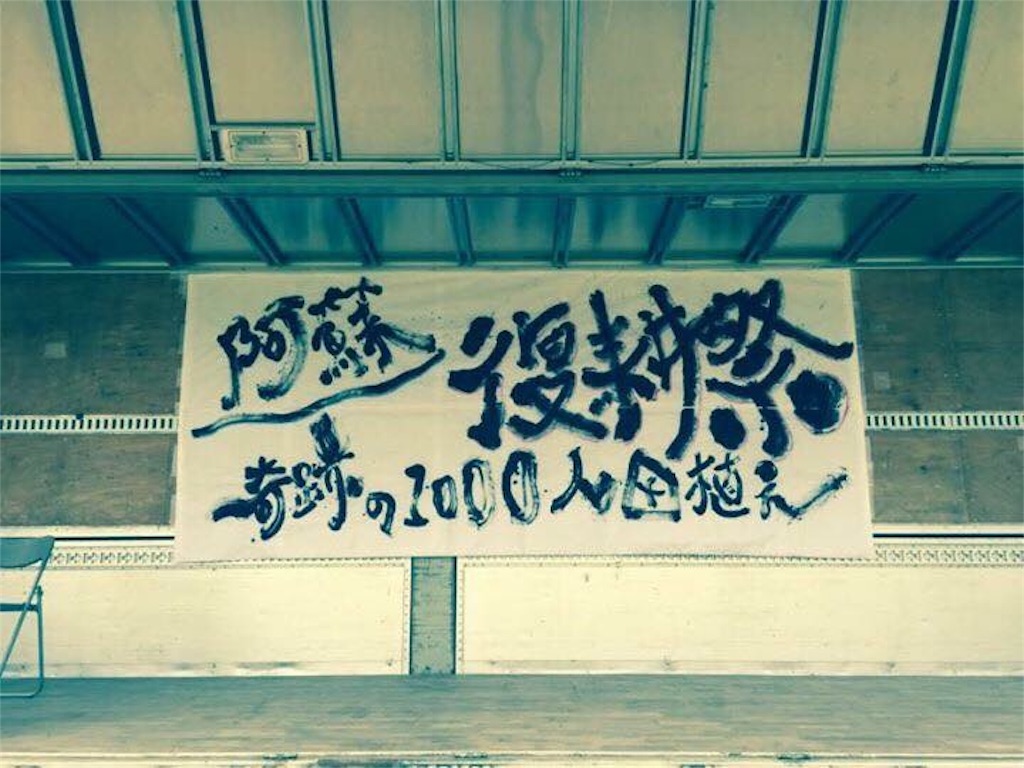 阿蘇 復耕祭
奇跡の1000人田植え